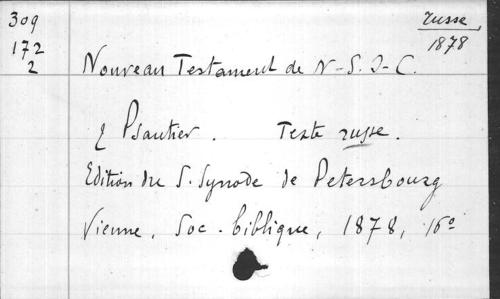 309
172
2
russe
1878
Nouveau Testament de N-S. J-C.
& Psautier. Texte russe.
Edition du S. Synode de Petersbourg
Vienne, Soc. biblique, 1878, 16º